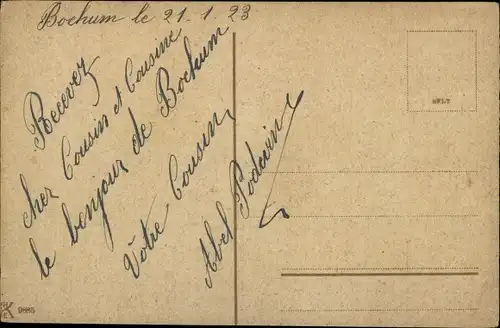 Bochum le 21.1.23
Recevez
cher Cousin et Cousine
le bonjour de Bochum
Votre Cousin
Abel Podevin
9885